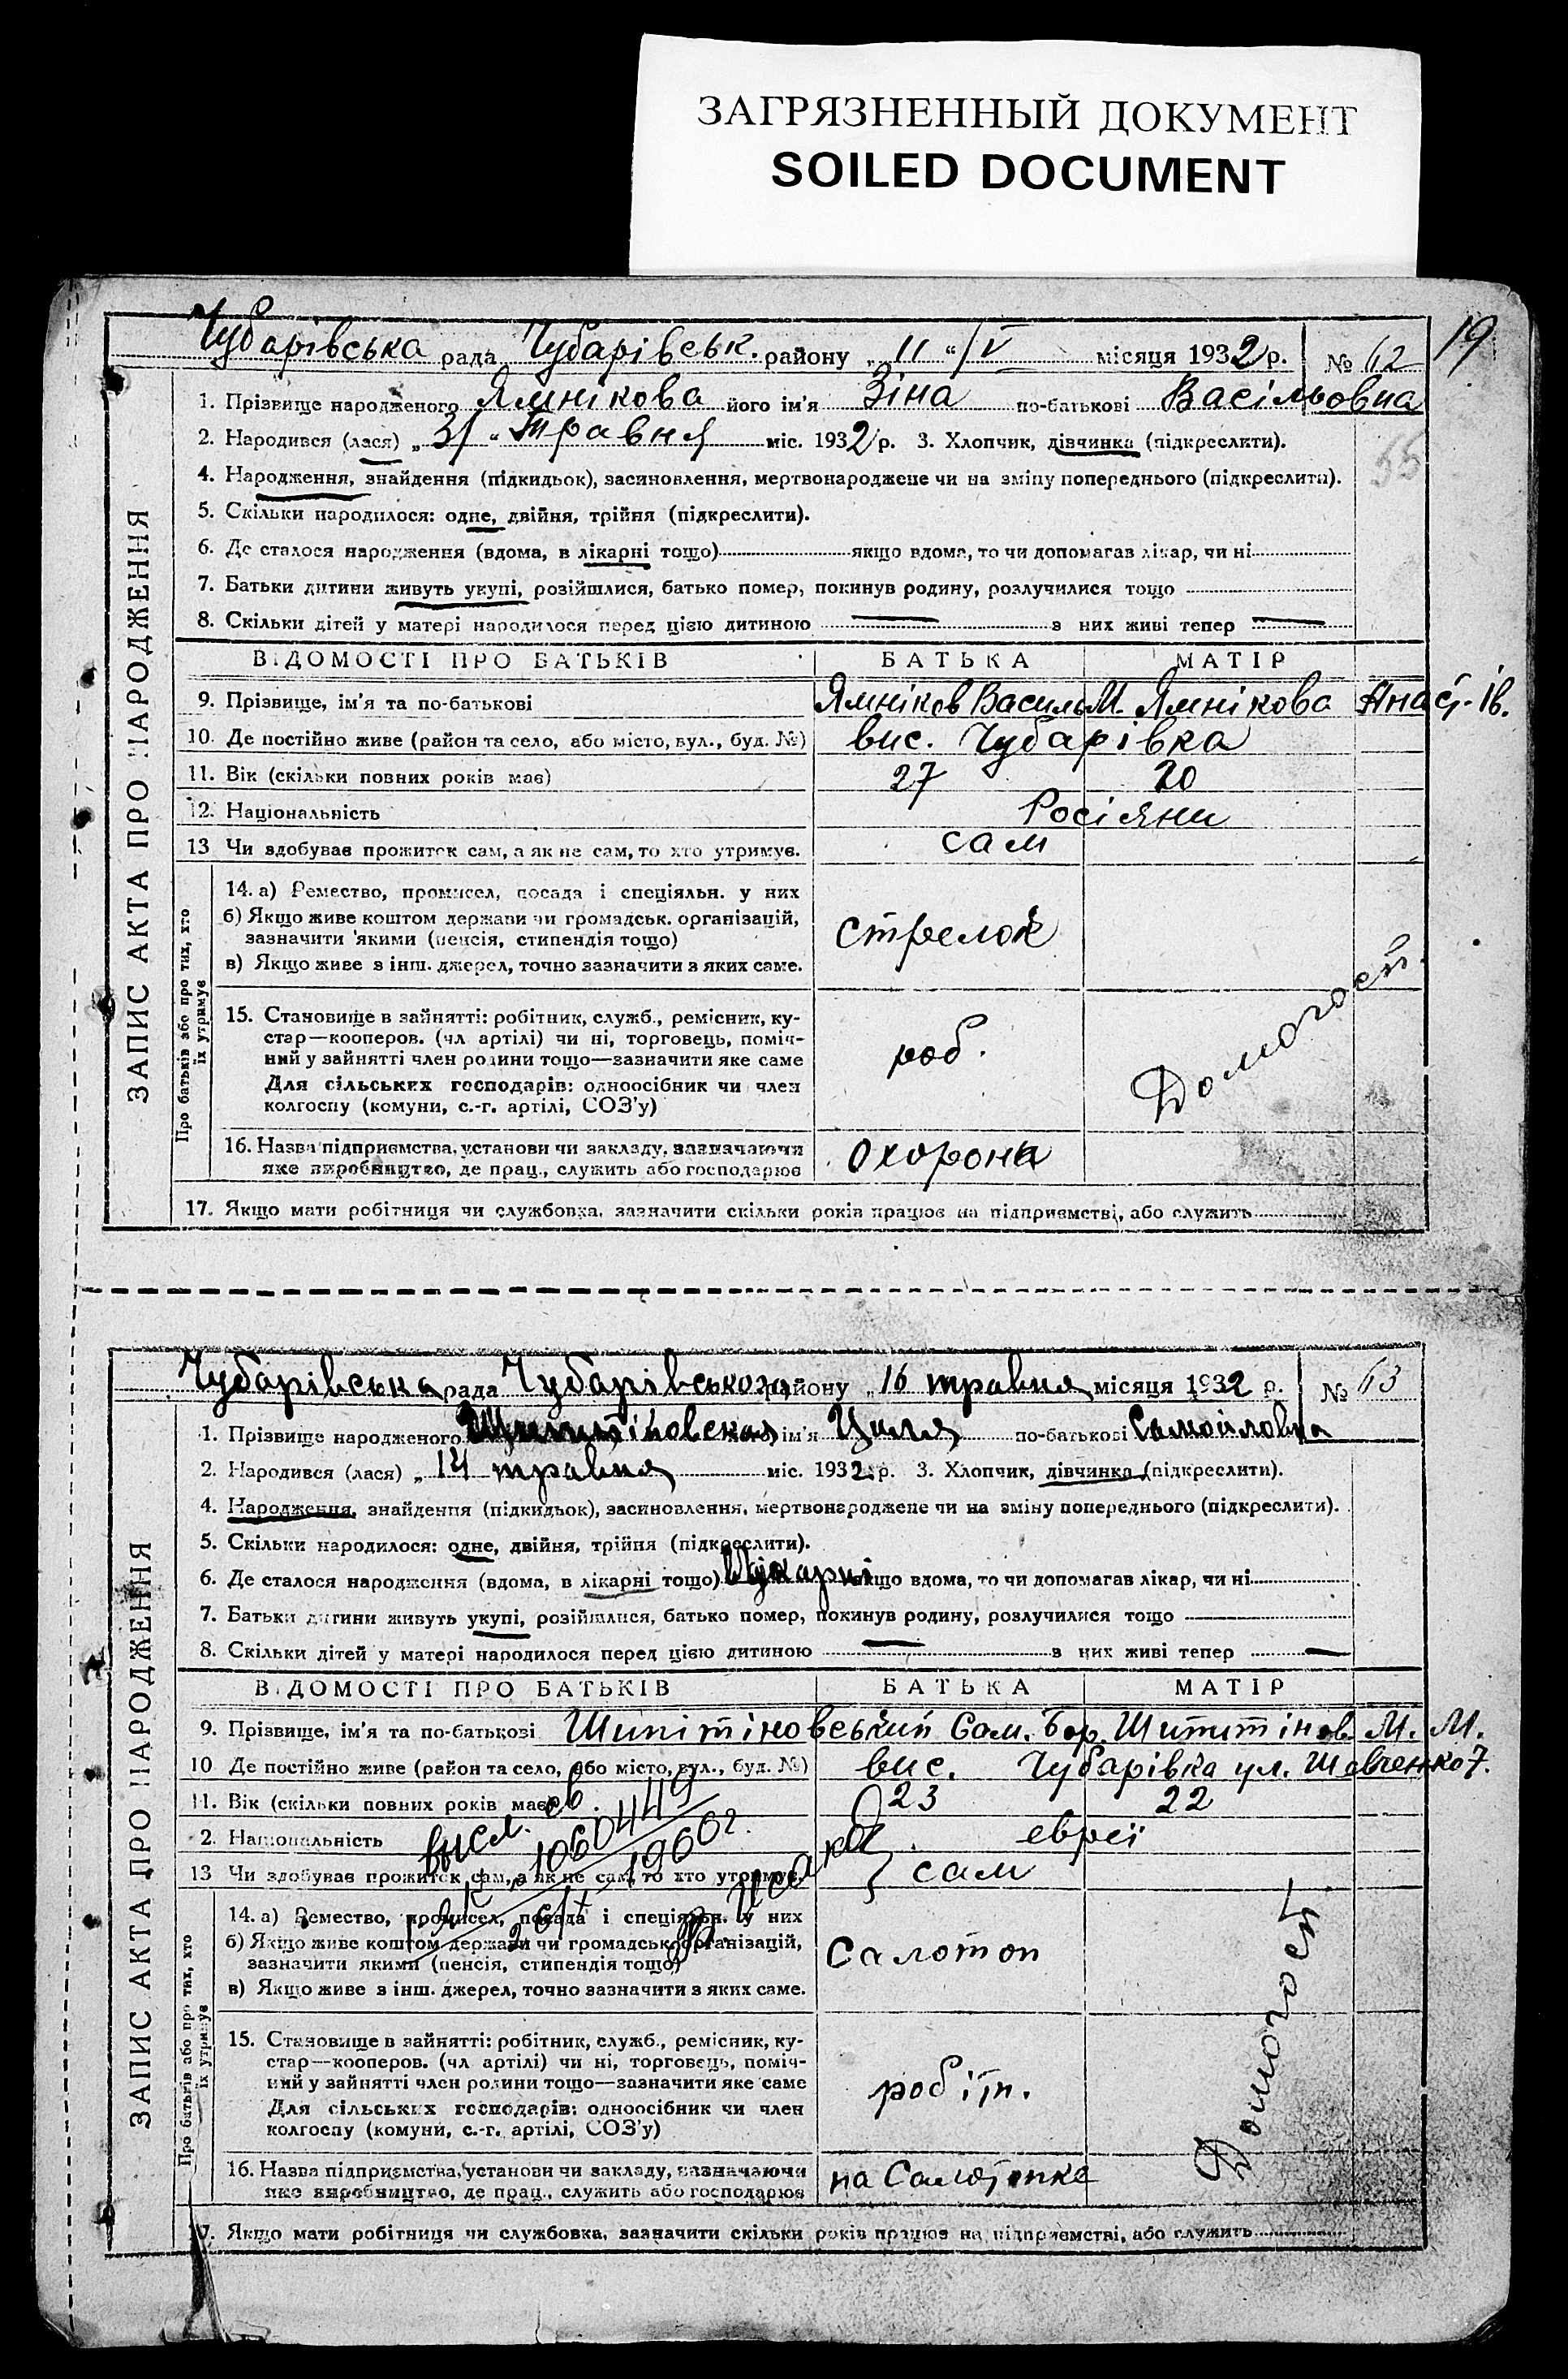 ЗАГРЯЗНЕННЫЙ ДОКУМЕНТ
SOILED DOCUMENT
19
Чубарівська рада Чубарівськ. району „11“ /V місяця 1932 р. № 62
ЗАПИС АКТА ПРО НАРОДЖЕННЯ
1. Прізвище народженого Ямнікова його ім'я Зіна по-батькові Васільовна
2. Народився (лася) „31“ Травня міс. 1932 р. 3. Хлопчик, дівчинка (підкреслити).
55
4. Народження, знайдення (підкидьок), засиновлення, мертвонароджене чи на зміну попереднього (підкреслити).
5. Скільки народилося: одне, двійня, трійня (підкреслити).
6. Де сталося народження (вдома, в лікарні тощо) якщо вдома, то чи допомагав лікар, чи ні
7. Батьки дитини живуть укупі, розійшлися, батько помер, покинув родину, розлучилися тощо
8. Скільки дітей у матері народилося перед цією дитиною — з них живі тепер —
ВІДОМОСТІ ПРО БАТЬКІВ БАТЬКА МАТІР
9. Прізвище, ім'я та по-батькові Ямніков Василь М. Ямнікова Анас̆. Ів.
10. Де постійно живе (район та село, або місто, вул., буд. №) вис. Чубарівка
11. Вік (скільки повних років має) 27 20
12. Національність Росіяни
13 Чи здобував прожиток сам, а як не сам, то хто утримує. сам
Про батьків або про тих, хто їх утримує
14. а) Ремество, промисел, посада і спеціяльн. у них
б) Якщо живе коштом держави чи громадськ. організацій,
зазначити якими (пенсія, стипендія тощо) стрелок
в) Якщо живе з інш. джерел, точно зазначити з яких саме.
Домогосп.
15. Становище в зайнятті: робітник, служб., ремісник, ку-
стар—кооперов. (чл артілі) чи ні, торговець, поміч-
ний у зайнятті член родини тощо—зазначити яке саме роб.
Для сільських господарів: одноосібник чи член
колгоспу (комуни, с.-г. артілі, СОЗ'у)
16. Назва підприємства, установи чи закладу, зазначаючи
яке виробництво, де прац., служить або господарює Охорона
17. Якщо мати робітниця чи службовка, зазначити скільки років працює на підприємстві, або служить
Чубарівська рада Чубарівського району „16 травня місяця 1932 р. № 63
ЗАПИС АКТА ПРО НАРОДЖЕННЯ
1. Прізвище народженого ім'я Циля по-батькові Самойловна
2. Народився (лася) „14 травня міс. 1932 р. 3. Хлопчик, дівчинка (підкреслити).
4. Народження, знайдення (підкидьок), засиновлення, мертвонароджене чи на зміну попереднього (підкреслити).
5. Скільки народилося: одне, двійня, трійня (підкреслити).
6. Де сталося народження (вдома, в лікарні тощо) якщо вдома, то чи допомагав лікар, чи ні
7. Батьки дитини живуть укупі, розійшлися, батько помер, покинув родину, розлучилися тощо
8. Скільки дітей у матері народилося перед цією дитиною — з них живі тепер —
ВІДОМОСТІ ПРО БАТЬКІВ БАТЬКА МАТІР
9. Прізвище, ім'я та по-батькові Шипітіновський Сам. Бор. Шипитінов. М. М.
10 Де постійно живе (район та село, або місто, вул., буд. №) вис. Чубарівка ул. Шевченко 7.
11. Вік (скільки повних років має) 23 22
12. Національність евреї
13 Чи здобував прожиток сам, а як не сам, то хто утримує. сам
высл. св.
1060449
1960г.
Про батьків або про тих, хто їх утримує
14. а) Ремество, промисел, посада і спеціяльн. у них
б) Якщо живе коштом держави чи громадськ. організацій,
зазначити якими (пенсія, стипендія тощо) Салотоп
в) Якщо живе з інш. джерел, точно зазначити з яких саме.
Домогосп.
15. Становище в зайнятті: робітник, служб., ремісник, ку-
стар—кооперов. (чл артілі) чи ні, торговець, поміч-
ний у зайнятті член родини тощо—зазначити яке саме робітн.
Для сільських господарів: одноосібник чи член
колгоспу (комуни, с.-г. артілі, СОЗ'у)
16. Назва підприємства, установи чи закладу, зазначаючи
яке виробництво, де прац., служить або господарює на Салотопке
17. Якщо мати робітниця чи службовка, зазначити скільки років працює на підприємстві, або служить